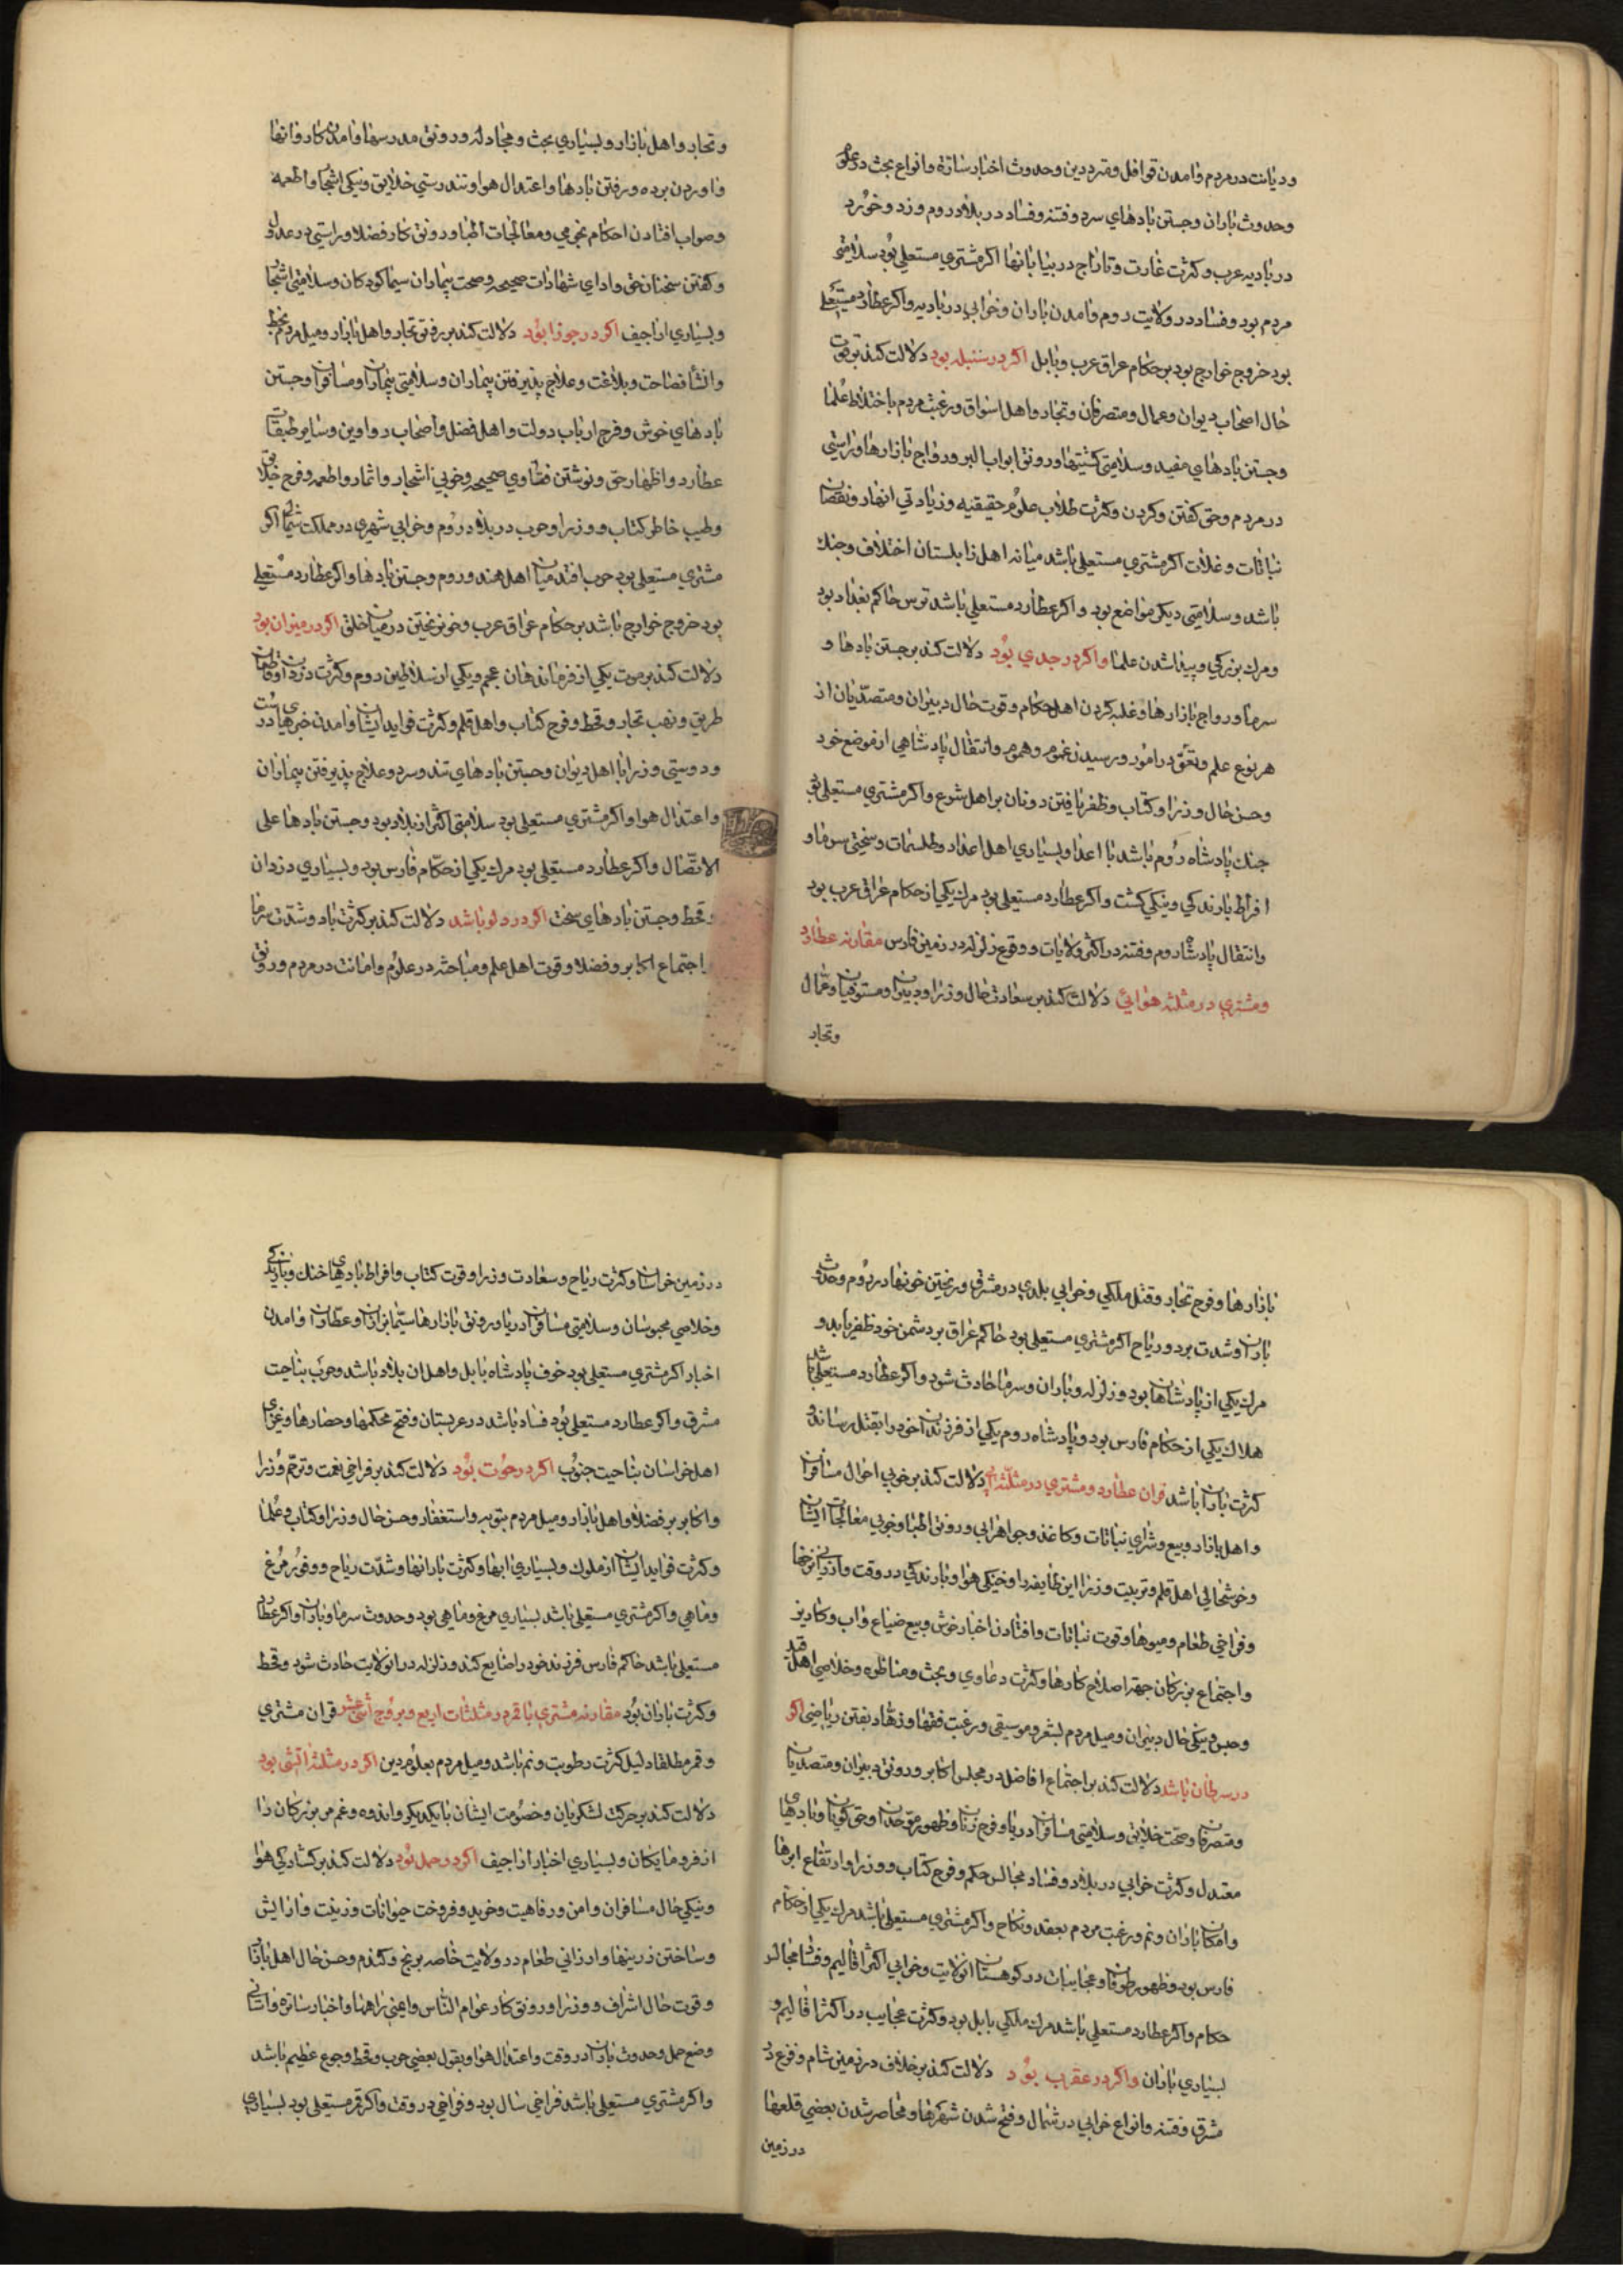 ودیانت در مردم وآمدن قوافل ومترددین وحدوث اخبار سازه وانواع بحث در علوم
وحدوث باران وجستن بادهای سرد وفتنه وفساد در بلاد روم وزد وخورد
در بادیه عرب وکثرت غارت وتاراج در بیابانها اکر مشتری مستعلی بود سلامتی
مردم بود وفساد در ولایت روم وآمدن باران وخرابی در بادیه واکر عطارد مستعلی
بود خروج خوارج بود بر حکام عراق عرب وبابل اکر در سنبله بود دلالت کند بر قوت
حال اصحاب دیوان وعمال ومتصرفان وتجار واهل اسواق ورغبت مردم باختلاط علما
وجستن بادهای مفید وسلامتی کشتیها ورونق ابواب البر ورواج بازارها وراستی
در مردم وحق کفتن وکردن وکثرت طلاب علوم حقیقیه وزیادتی انهار ونقصان
نباتات وغلات اکر مشتری مستعلی باشد میانه اهل زابلستان اختلاف وجنك
باشد وسلامتی دیکر مواضع بود واکر عطارد مستعلی باشد ترس حاکم بغداد بود
ومرك بزرکی وپیدا شدن علما واکر در جدی بود دلالت کند بر جستن بادها و
سرما ورواج بازارها وغلبه کردن اهل حکام وقوت حال دبیران ومتصدیان از
هر نوع علم وتعمق در امور ورسیدن غموم وهموم وانتقال پادشاهی از موضع خود
وحسن حال وزرا وکتاب وظفر یافتن دونان بر اهل شرع واکر مشتری مستعلی بود
جنك پادشاه روم باشد با اعدا وبسیاری اهل اعداد وطلسمات وسختی سرما و
افراط بارندکی ونیکی کشت واکر عطارد مستعلی بود مرك یکی از حکام عراق عرب بود
وانتقال پادشاه روم وفتنه در اکثر ولایات ووقوع زلزله در زمین فارس مقارنه عطارد
ومشتری در مثلثه هوائی دلالت کند بر سعادت حال وزرا ودبیران ومستوفیان وعمال
وتجار
وتجار واهل بازار وبسیاری بحث ومجادله ورونق مدرسها وآمدن کاروانها
وآوردن برده ورفتن بادها واعتدال هوا وتندرستی خلایق ونیکی اشجار واطعمه
وصواب افتادن احکام نجومی ومعالجات اطبا ورونق کار فضلا وراستی در عدول
وکفتن سخنان حق وادای شهادات صحیحه وصحت بیماران سیما کودکان وسلامتی اشجار
وبسیاری اراجیف اکر در جوزا بود دلالت کند بر رفق تجار واهل بازار ومیل مردم بخط
وانشا فصاحت وبلاغت وعلاج پذیرفتن بیماران وسلامتی بیماران ومسافران وجستن
بادهای خوش وفرح ارباب دولت واهل فضل واصحاب دواوین وسایر طبقات
عطارد واظهار حق ونوشتن فتاوی صحیحه وخوبی اشجار واثمار واطعمه وفرح خلایق
وطیب خاطر کتاب ووزرا وحرب در بلاد روم وخرابی شهری در مملکت شمال اکر
مشتری مستعلی بود حرب افتد میان اهل هند وروم وجستن بادها واکر عطارد مستعلی
بود خروج خوارج باشد بر حکام عراق عرب وخون ریختن در میان خلق اکر در میزان بود
دلالت کند بر موت یکی از فرماندهان عجم ویکی از سلاطین روم وکثرت دزدان وقاطعان
طریق ونهب تجار وقحط وفرح کتاب واهل قلم وکثرت فواید ایشان وآمدن خبرهای درست
ودوستی وزرا با اهل دیوان وجستن بادهای تند وسرد وعلاج پذیرفتن بیماران
واعتدال هوا واکر مشتری مستعلی بود سلامتی اکثر از بلاد بود وجستن بادها علی
الاتصال واکر عطارد مستعلی بود مرك یکی از حکام فارس بود وبسیاری دزدان
وقحط وجستن بادهای سخت اکر در دلو باشد دلالت کند بر کثرت باد وشدت سرما
واجتماع اکابر وفضلا وقوت اهل علم ومباحثه در علوم وامانت در مردم ورونق
بازارها وفرح تجار وقتل ملکی وخرابی بلدی در مشرق وریختن خونها در روم وحدوث
باران وشدت برد وریاح اکر مشتری مستعلی بود حاکم عراق بر دشمن خود ظفر یابد و
مرك یکی از پادشاهان بود وزلزله وباران وسرما حادث شود واکر عطارد مستعلی باشد
هلاك یکی از حکام فارس بود وپادشاه روم یکی از فرزندان خود را بقتل رساند و
کثرت باران باشد قران عطارد ومشتری در مثلثه آبی دلالت کند بر خوبی احوال مسافران
واهل بازار وبیع وشرای نباتات وکاغذ وجواهر آبی ورونق اطبا وخوبی معالجات ایشان
وخوشحالی اهل قلم وتربیت وزرا این طایفه را وخنکی هوا وبارندکی در وقت وارزانی نرخها
وفراخی طعام ومیوها وقوت نباتات وافتادن اخبار خوش وبیع ضیاع وآب وکاریز
واجتماع بزرکان جهة اصلاح کارها وکثرت دعاوی وبحث ومناظره وخلاصی اهل قید
وحبس ونیکی حال دبیران ومیل مردم بشعر وموسیقی ورغبت فقها وزهاد بفتن ریاضی اکر
در سرطان باشد دلالت کند بر اجتماع افاضل در مجلس اکابر ورونق دبیران ومتصدیان
ومتصرفان وصحت خلایق وسلامتی مسافران دریا وفرح زنان وظهور موحدان وحق کویان وبادهای
معتدل وکثرت خرابی در بلاد وفساد مجالس حکم وفرح کتاب ووزرا وارتفاع ابرها
وامکان باران ونم ورغبت مردم بعقد ونکاح واکر مشتری مستعلی باشد مرك یکی از حکام
فارس بود وظهور طوفان وعجایبات در کوهستان آن ولایت وخرابی اکثر اقالیم وفساد مجالس
حکام واکر عطارد مستعلی باشد مرك ملکی بابل بود وکثرت عجایب در اکثر اقالیم و
بسیاری باران واکر در عقرب بود دلالت کند بر خلاف در زمین شام وفرع در
مشرق وفتنه وانواع خرابی در شمال وفتح شدن شهرها ومحاصر شدن بعضی قلعها
در زمین
در زمین خراسان وکثرت ریاح وسعادت وزرا وقوت کتاب وافراط بادهای خنك وبارندکی
وخلاصی محبوسان وسلامتی مسافران دریا ورونق بازارها سیما بزازان وعطاران وآمدن
اخبار اکر مشتری مستعلی بود خوف پادشاه بابل واهل آن بلاد باشد وحرب بناحیت
مشرق واکر عطارد مستعلی بود فساد باشد در عربستان وفتح محکمها وحصارها وغزای
اهل خراسان بناحیت جنوب اکر در حوت بود دلالت کند بر فراخی نعمت وترحم وزرا
واکابر بر فضلا واهل بازار ومیل مردم بتوبه واستغفار وحسن حال وزرا وکتاب وعلما
وکثرت فواید ایشان از ملوك وبسیاری آبها وکثرت بارانها وشدت ریاح ووفور مرغ
وماهی واکر مشتری مستعلی باشد بسیاری مرغ وماهی بود وحدوث سرما وباران واکر عطارد
مستعلی باشد حاکم فارس فرزند خود را ضایع کند وزلزله در آن ولایت حادث شود وقحط
وکثرت باران بود مقارنه مشتری با قمر در مثلثات اربع وبروج اثنی عشر قران مشتری
وقمر مطلقا دلیل کثرت رطوبت ونم باشد ومیل مردم بعلوم دین اکر در مثلثه آتشی بود
دلالت کند بر حرکت لشکریان وخصومت ایشان با یکدیکر واندوه وغم مر بزرکان را
از فرومایکان وبسیاری اخبار اراجیف اکر در حمل بود دلالت کند بر کشادکی هوا
ونیکی حال مسافران وامن ورفاهیت وخرید وفروخت حیوانات وزینت وآرایش
وساختن زرینها وارزانی طعام در ولایت خاصه برنج وکندم وحسن حال اهل بازار
وقوت حال اشراف ووزرا ورونق کار عوام الناس وایمنی راهها واخبار ساره وآسانی
وضع حمل وحدوث باران در وقت واعتدال هوا وبقول بعضی حرب وقحط وجوع عظیم باشد
واکر مشتری مستعلی باشد فراخی سال بود وفراخی در وقت واکر قمر مستعلی بود بسیاری